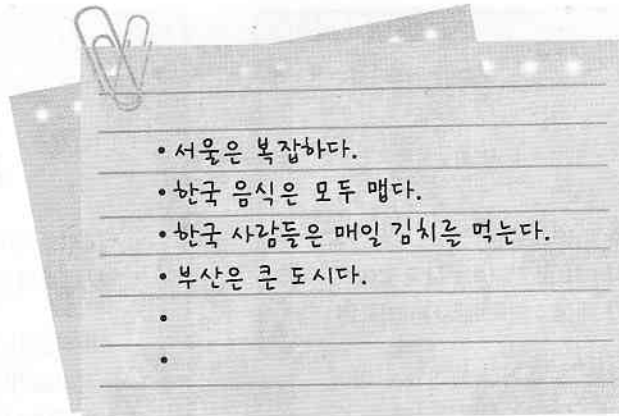 • 서울은 복잡하다.
• 한국 음식은 모두 맵다.
• 한국 사람들은 매일 김치를 먹는다.
• 부산은 큰 도시다.
•
•